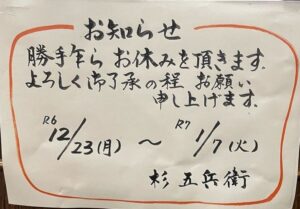 お知らせ
勝手乍ら お休みを頂きます.
よろしく御了承の程 お願い
申し上げます.
R6 12/23(月) ～ R7 1/7(火)
杉 五兵衛